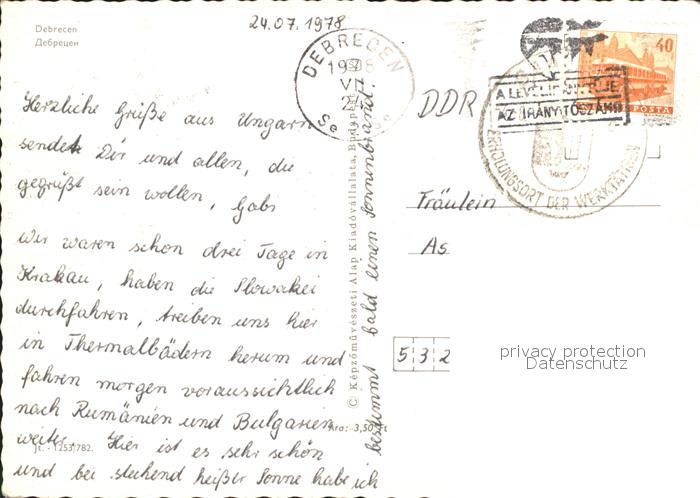 24.07.1978
Debrecen
Дебрецен
Herzliche Grüße aus Ungarn
sendet Dir und allen, die
gegrüßt sein wollen, Gabi
Wir waren schon drei Tage in
Krakau, haben die Slowakei
durchfahren, treiben uns hier
in Thermalbädern herum und
fahren morgen voraussichtlich
nach Rumänien und Bulgarien
weiter. Hier ist es sehr schön
und bei stechend heißer Sonne habe ich
bestimmt bald einen Sonnenbrand!
Jt. - 1253/782.
Ára: 3,50 Ft
© Képzőművészeti Alap Kiadóvállalata, Budapest
DEBRECEN
DDR
40
POSTA
A LEVÉLIRÁNYÍTÁS
AZ IRÁNYÍTÓSZÁM!
ERHOLUNGSORT DER WERKTÄTIGEN
Fräulein
As
532
privacy protection
Datenschutz